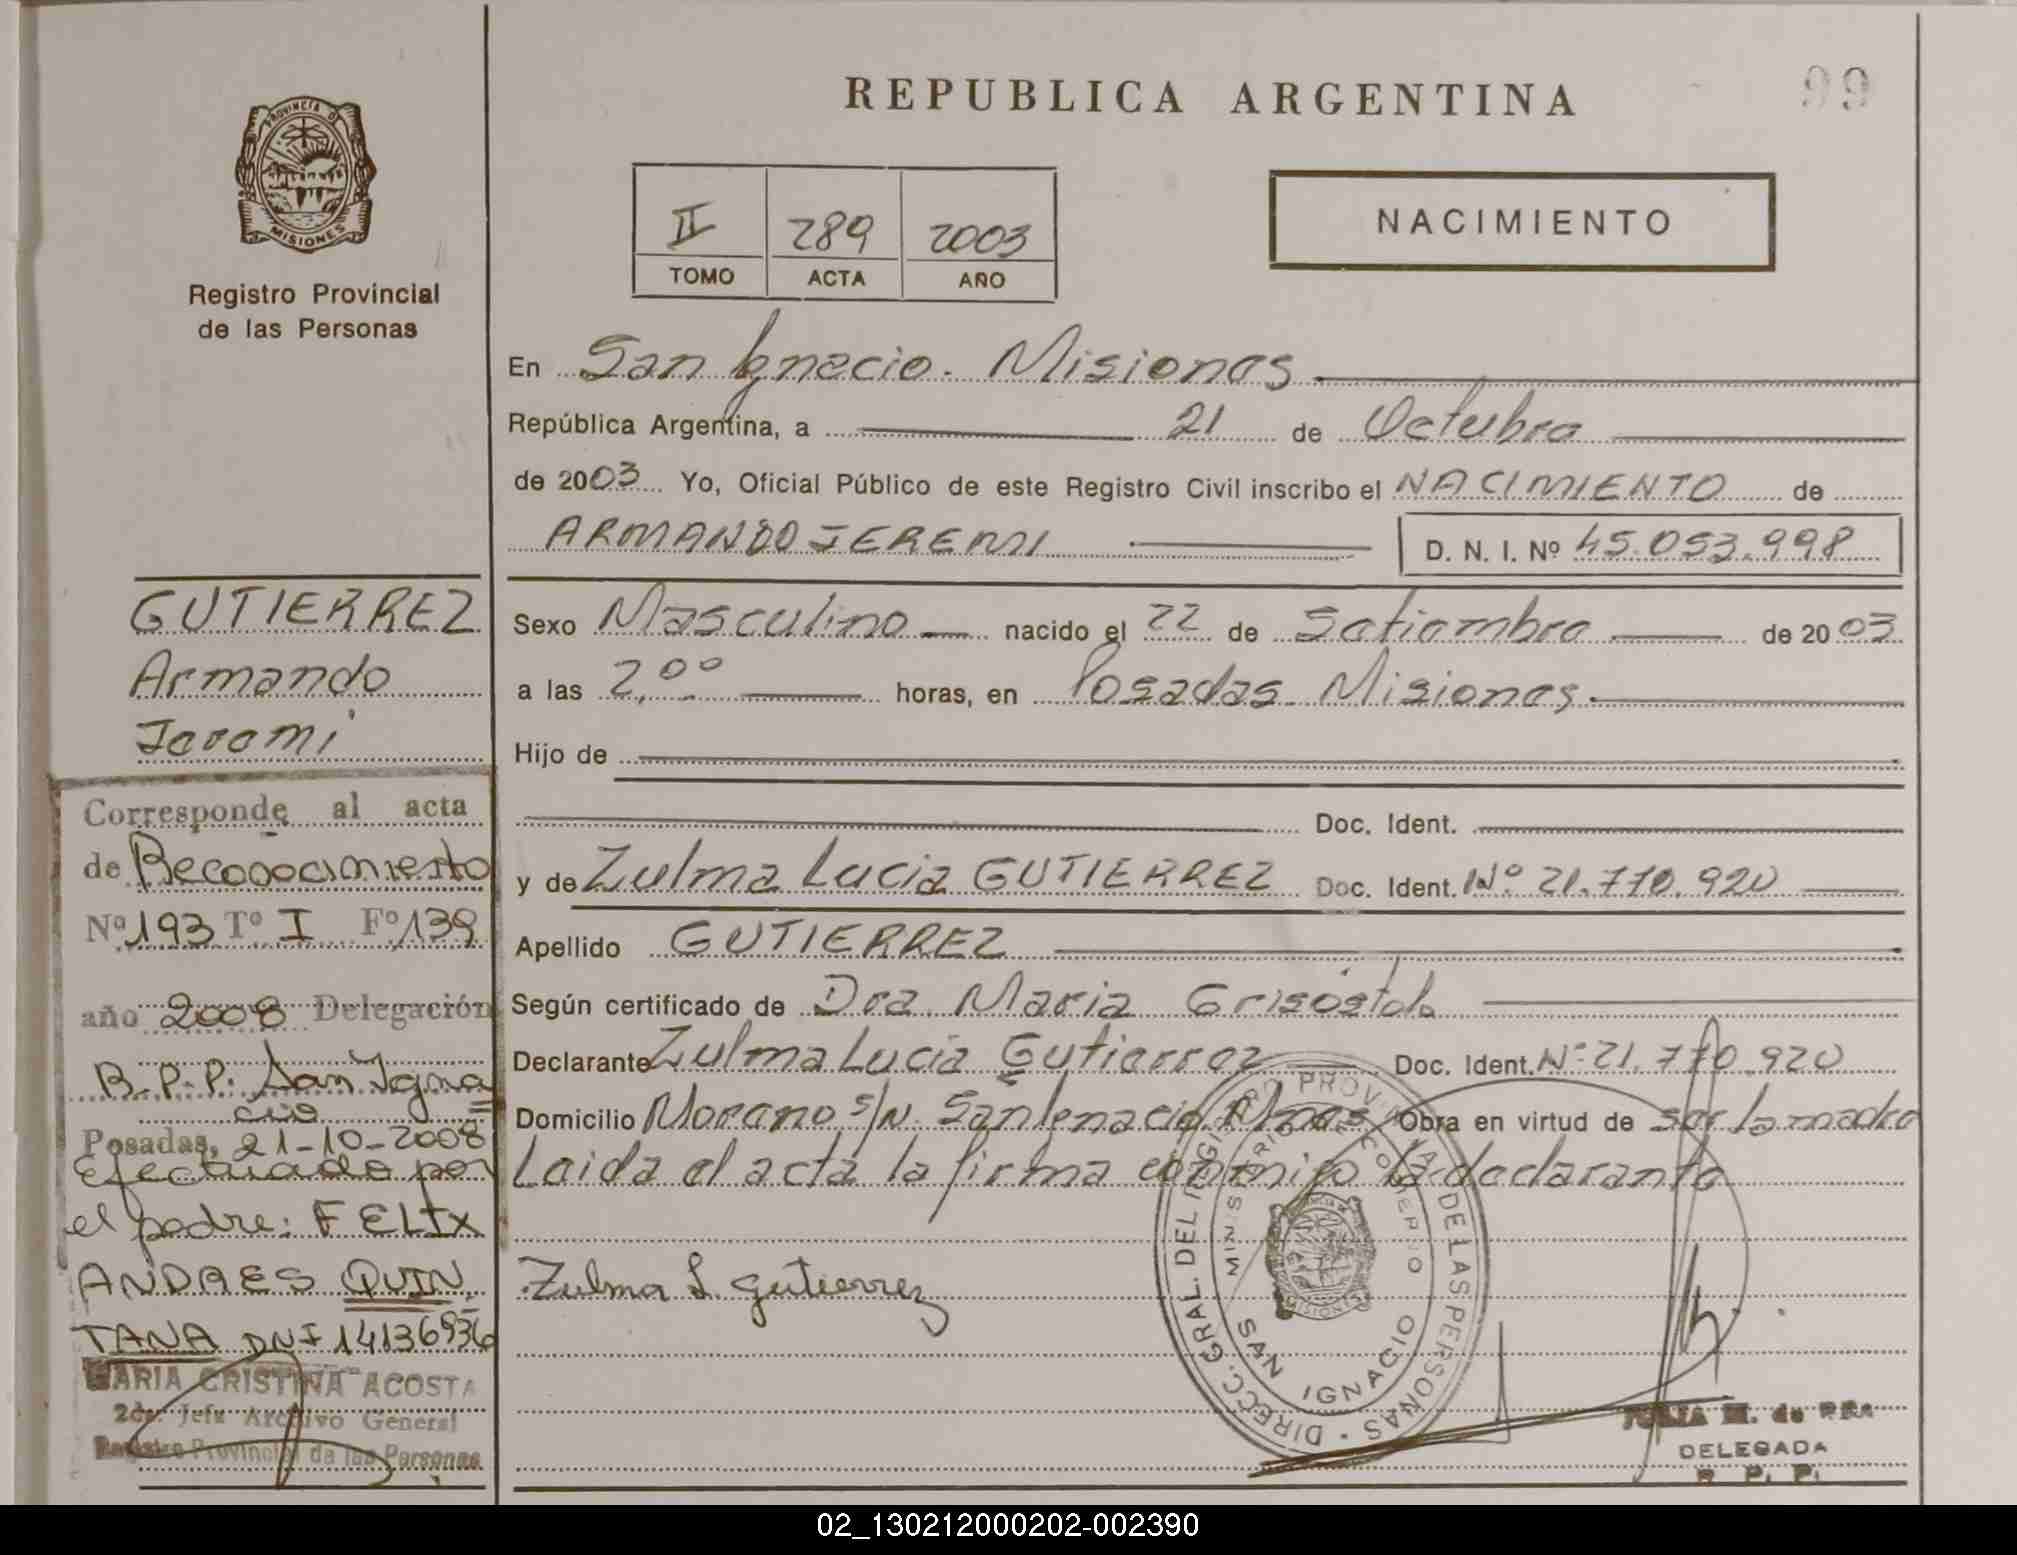 REPUBLICA ARGENTINA
99
PROVINCIA DE
MISIONES
Registro Provincial
de las Personas
II 289 2003
TOMO ACTA AÑO
NACIMIENTO
En San Ignacio. Misiones
República Argentina, a 21 de Octubre
de 2003 Yo, Oficial Público de este Registro Civil inscribo el NACIMIENTO de
ARMANDO JEREMI D. N. I. Nº 45.053.998
Sexo Masculino nacido el 22 de Setiembre de 2003
a las 2,00 horas, en Posadas Misiones.
Hijo de
Doc. Ident.
y de Zulma Lucia GUTIERREZ Doc. Ident. Nº 21.770.920
Apellido GUTIERREZ
Según certificado de Dra. Maria Grisóstola
Declarante Zulma Lucia Gutierrez Doc. Ident. Nº 21.770.920
Domicilio Moreno s/N. San Ignacio Mnes Obra en virtud de ser la madre
Leida el acta la firma conmigo la declarante
Zulma L. Gutierrez
DIRECC. GRAL. DEL REGISTRO PROVINCIAL DE LAS PERSONAS
MINISTERIO DE GOBIERNO
MISIONES
SAN IGNACIO
JULIA M. de
DELEGADA
R. P. P.
GUTIERREZ
Armando
Jeremi
Corresponde al acta
de Reconocimiento
Nº 193 Tº I Fº 139
año 2008 Delegación
R.P.P. San Igna
cio
Posadas, 21-10-2008
Efectuado por
el padre: FELIX
ANDRES QUIN
TANA DNI 14136936
MARIA CRISTINA ACOSTA
2da. Jefe Archivo General
Registro Provincial de las Personas
02_130212000202-002390